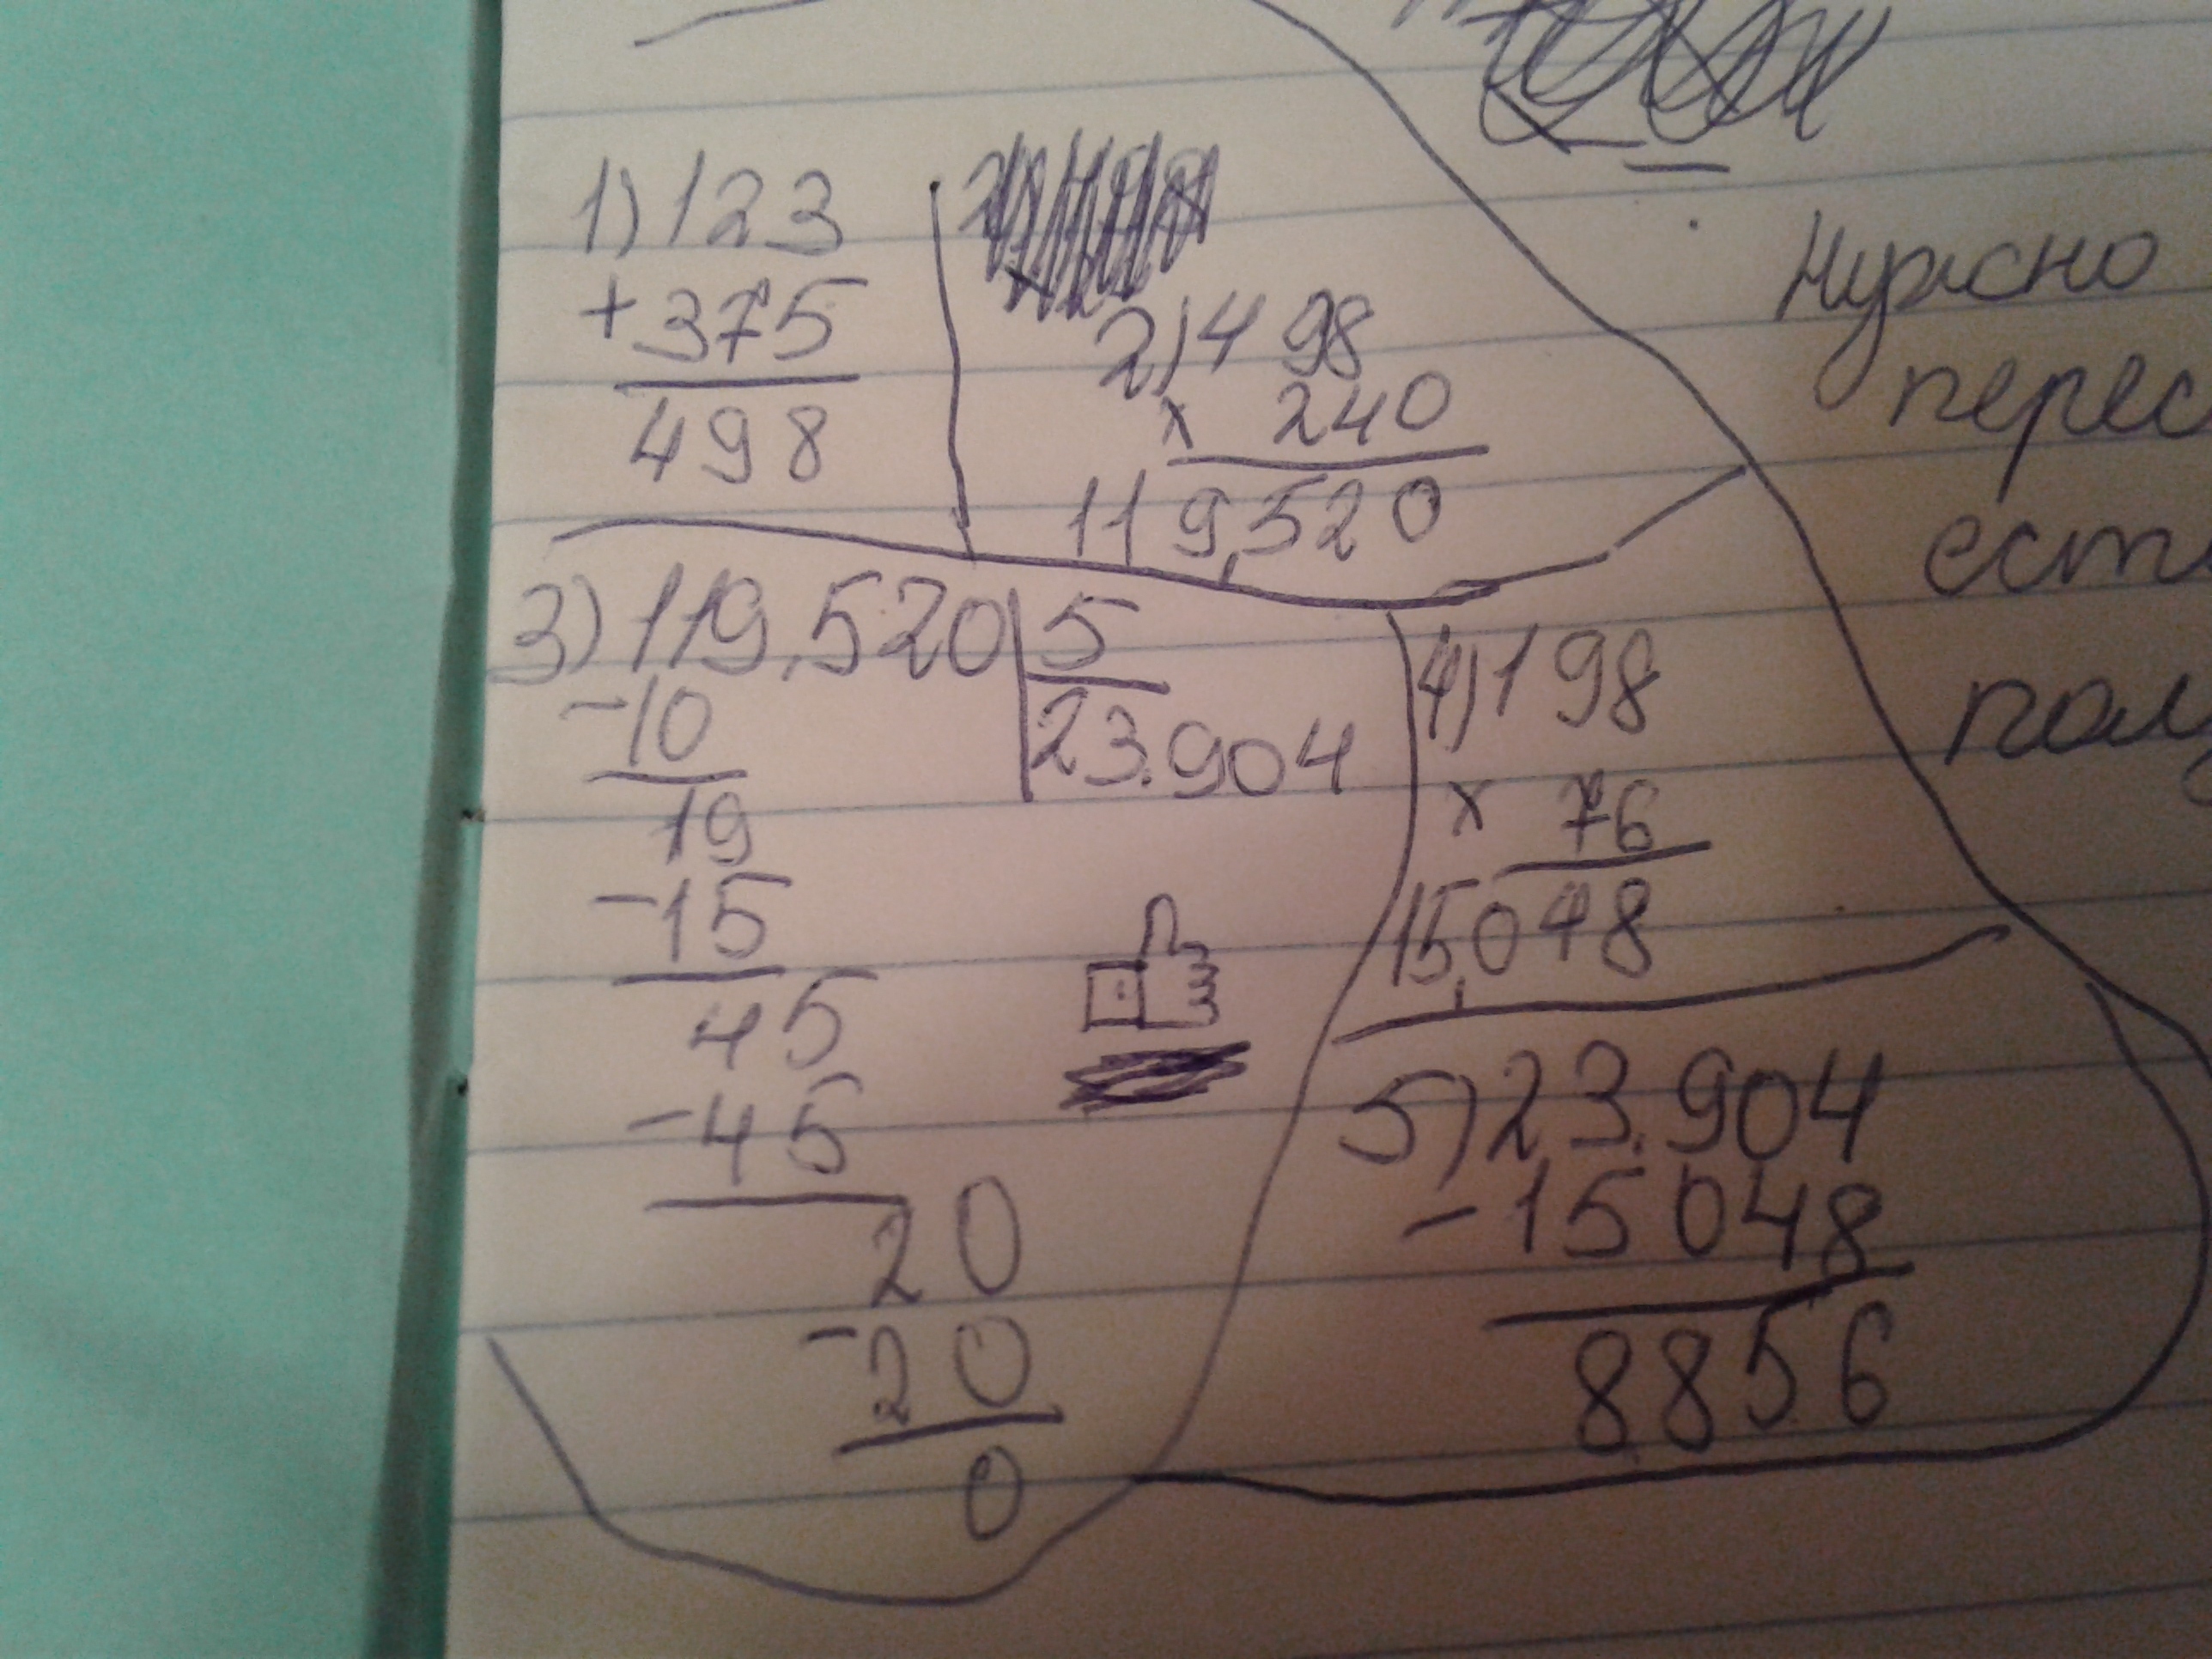 1) 123
+ 375
498
2) 498
x 240
119,520
3) 119,520 | 5
-10
23.904
19
-15
45
-45
20
-20
0
4) 198
x 76
15,048
5) 23.904
-15048
8856
Нужно